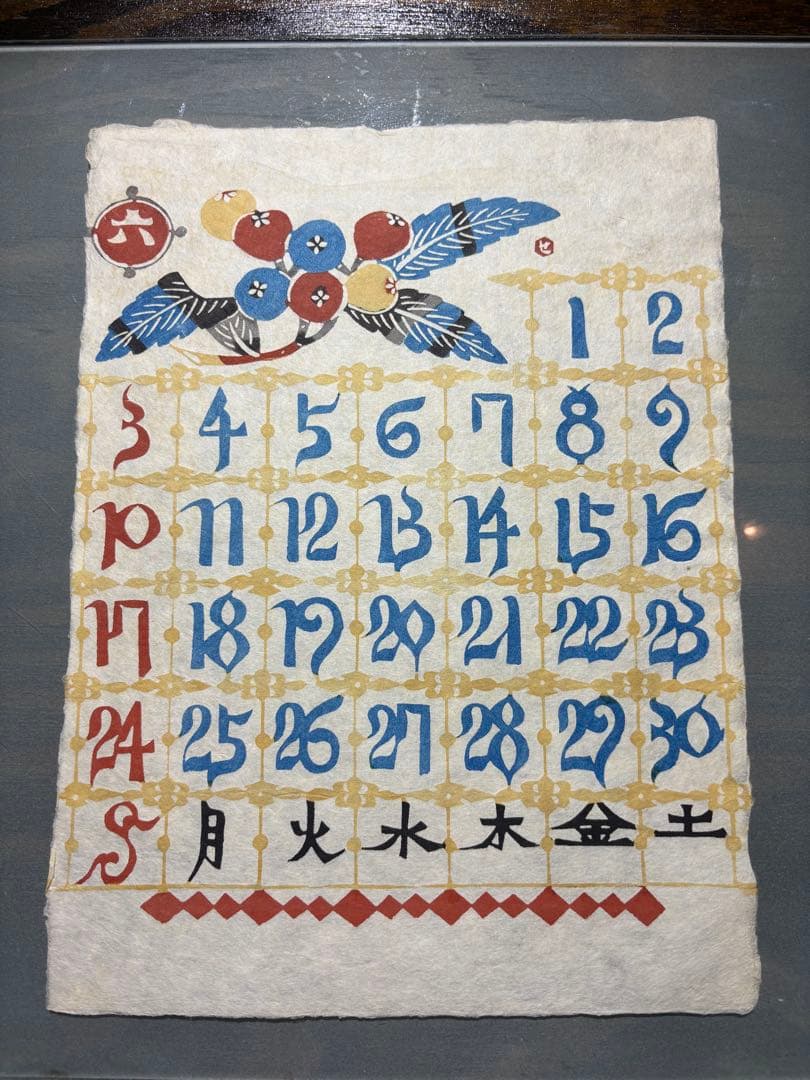 六
せ
1 2
3 4 5 6 7 8 9
10 11 12 13 14 15 16
17 18 19 20 21 22 23
24 25 26 27 28 29 30
S 月 火 水 木 金 土